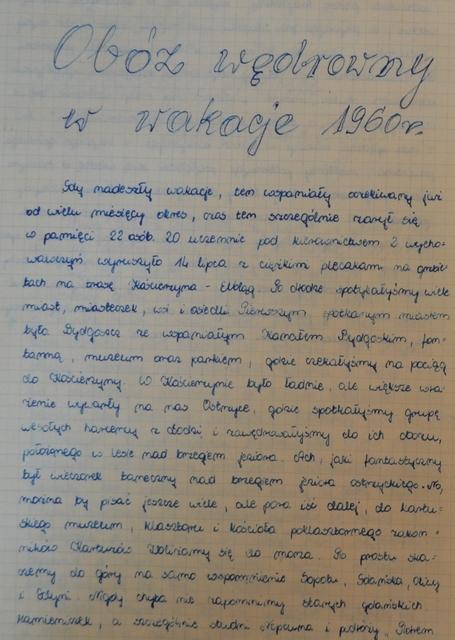 Obóz wędrowny
w wakacje 1960r.
Gdy nadeszły wakacje, ten wspaniały oczekiwany już
od wielu miesięcy okres, czas ten szczególnie zarył się
w pamięci 22 osób. 20 uczennic pod kierownictwem 2 wycho-
wawczyń wyruszyło 14 lipca z ciężkimi plecakami na grzbie-
tach na trasę Kościerzyna - Elbląg. Po drodze spotykałyśmy wiele
miast, miasteczek, wsi i osiedli. Pierwszym, spotkanym miastem
była Bydgoszcz ze wspaniałym Kanałem Bydgoskim, fon-
tanną, muzeum oraz parkiem, gdzie czekałyśmy na pociąg
do Kościerzyny. W Kościerzynie było ładnie, ale większe wra-
żenie wywarły na nas Ostrzyce, gdzie spotkałyśmy grupę
wesołych harcerzy z Łodzi i zawędrowałyśmy do ich obozu,
położonego w lesie nad brzegiem jeziora. Ach, jaki fantastyczny
był wieczorek taneczny nad brzegiem jeziora ostrzyckiego. No,
można by pisać jeszcze wiele, ale pora iść dalej, do kartu-
skiego muzeum, klasztoru i kościoła poklasztornego zakon-
ników Kartuzów. Zbliżamy się do morza. Po prostu ska-
czemy do góry na samo wspomnienie Sopotu, Gdańska, Oliwy
i Gdyni. Nigdy chyba nie zapomnimy starych gdańskich
kamieniczek, a szczególnie studni Neptuna i podróży. Potem